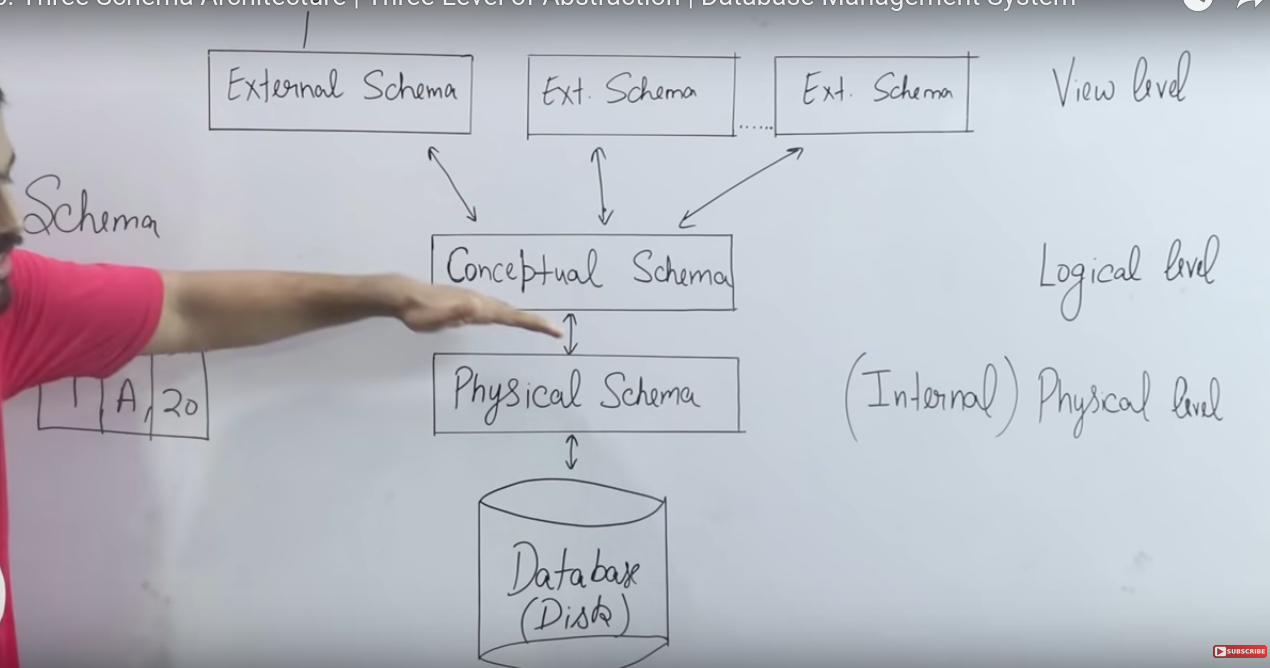 Three Schema Architecture | Three Level of Abstraction | Database Management System
External Schema
Ext. Schema
......
Ext. Schema
View level
Schema
Conceptual Schema
Logical level
1 A, 20
Physical Schema
(Internal) Physical level
Database
(Disk)
SUBSCRIBE